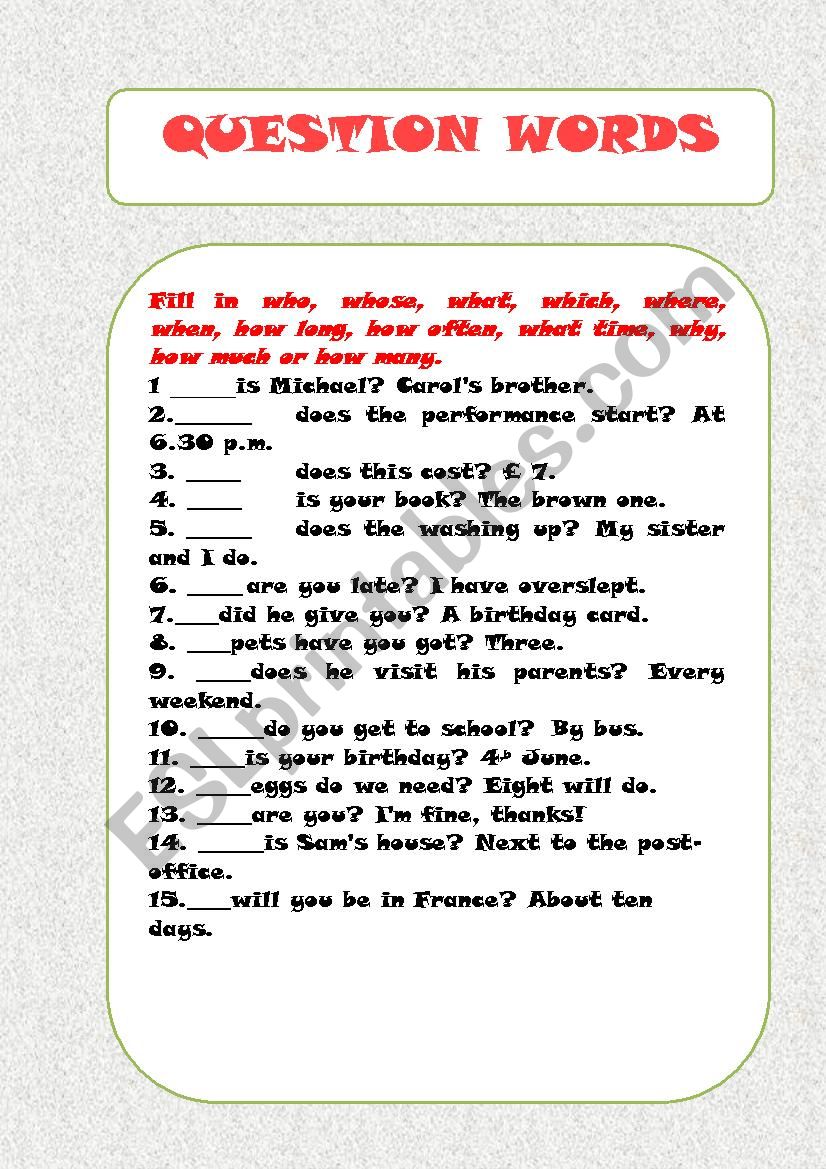 QUESTION WORDS
Fill in who, whose, what, which, where,
when, how long, how often, what time, why,
how much or how many.
1 _____is Michael? Carol's brother.
2.______ does the performance start? At
6.30 p.m.
3. _____ does this cost? £ 7.
4. _____ is your book? The brown one.
5. ______ does the washing up? My sister
and I do.
6. _____are you late? I have overslept.
7.____did he give you? A birthday card.
8. ____pets have you got? Three.
9. _____does he visit his parents? Every
weekend.
10. ______do you get to school? By bus.
11. _____is your birthday? 4th June.
12. _____eggs do we need? Eight will do.
13. _____are you? I'm fine, thanks!
14. ______is Sam's house? Next to the post-
office.
15.____will you be in France? About ten
days.
ESLprintables.com